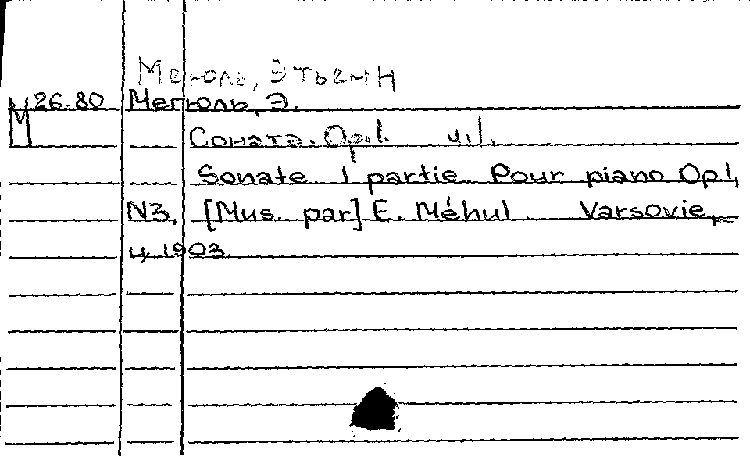 Мегюль, Этьенн
М 26.80 Мегюль, Э.
Соната. Op.1. ч.1.
Sonate 1 partie Pour piano Op1,
N3. [Mus. par] E. Méhul. Varsovie,
ц. 1903